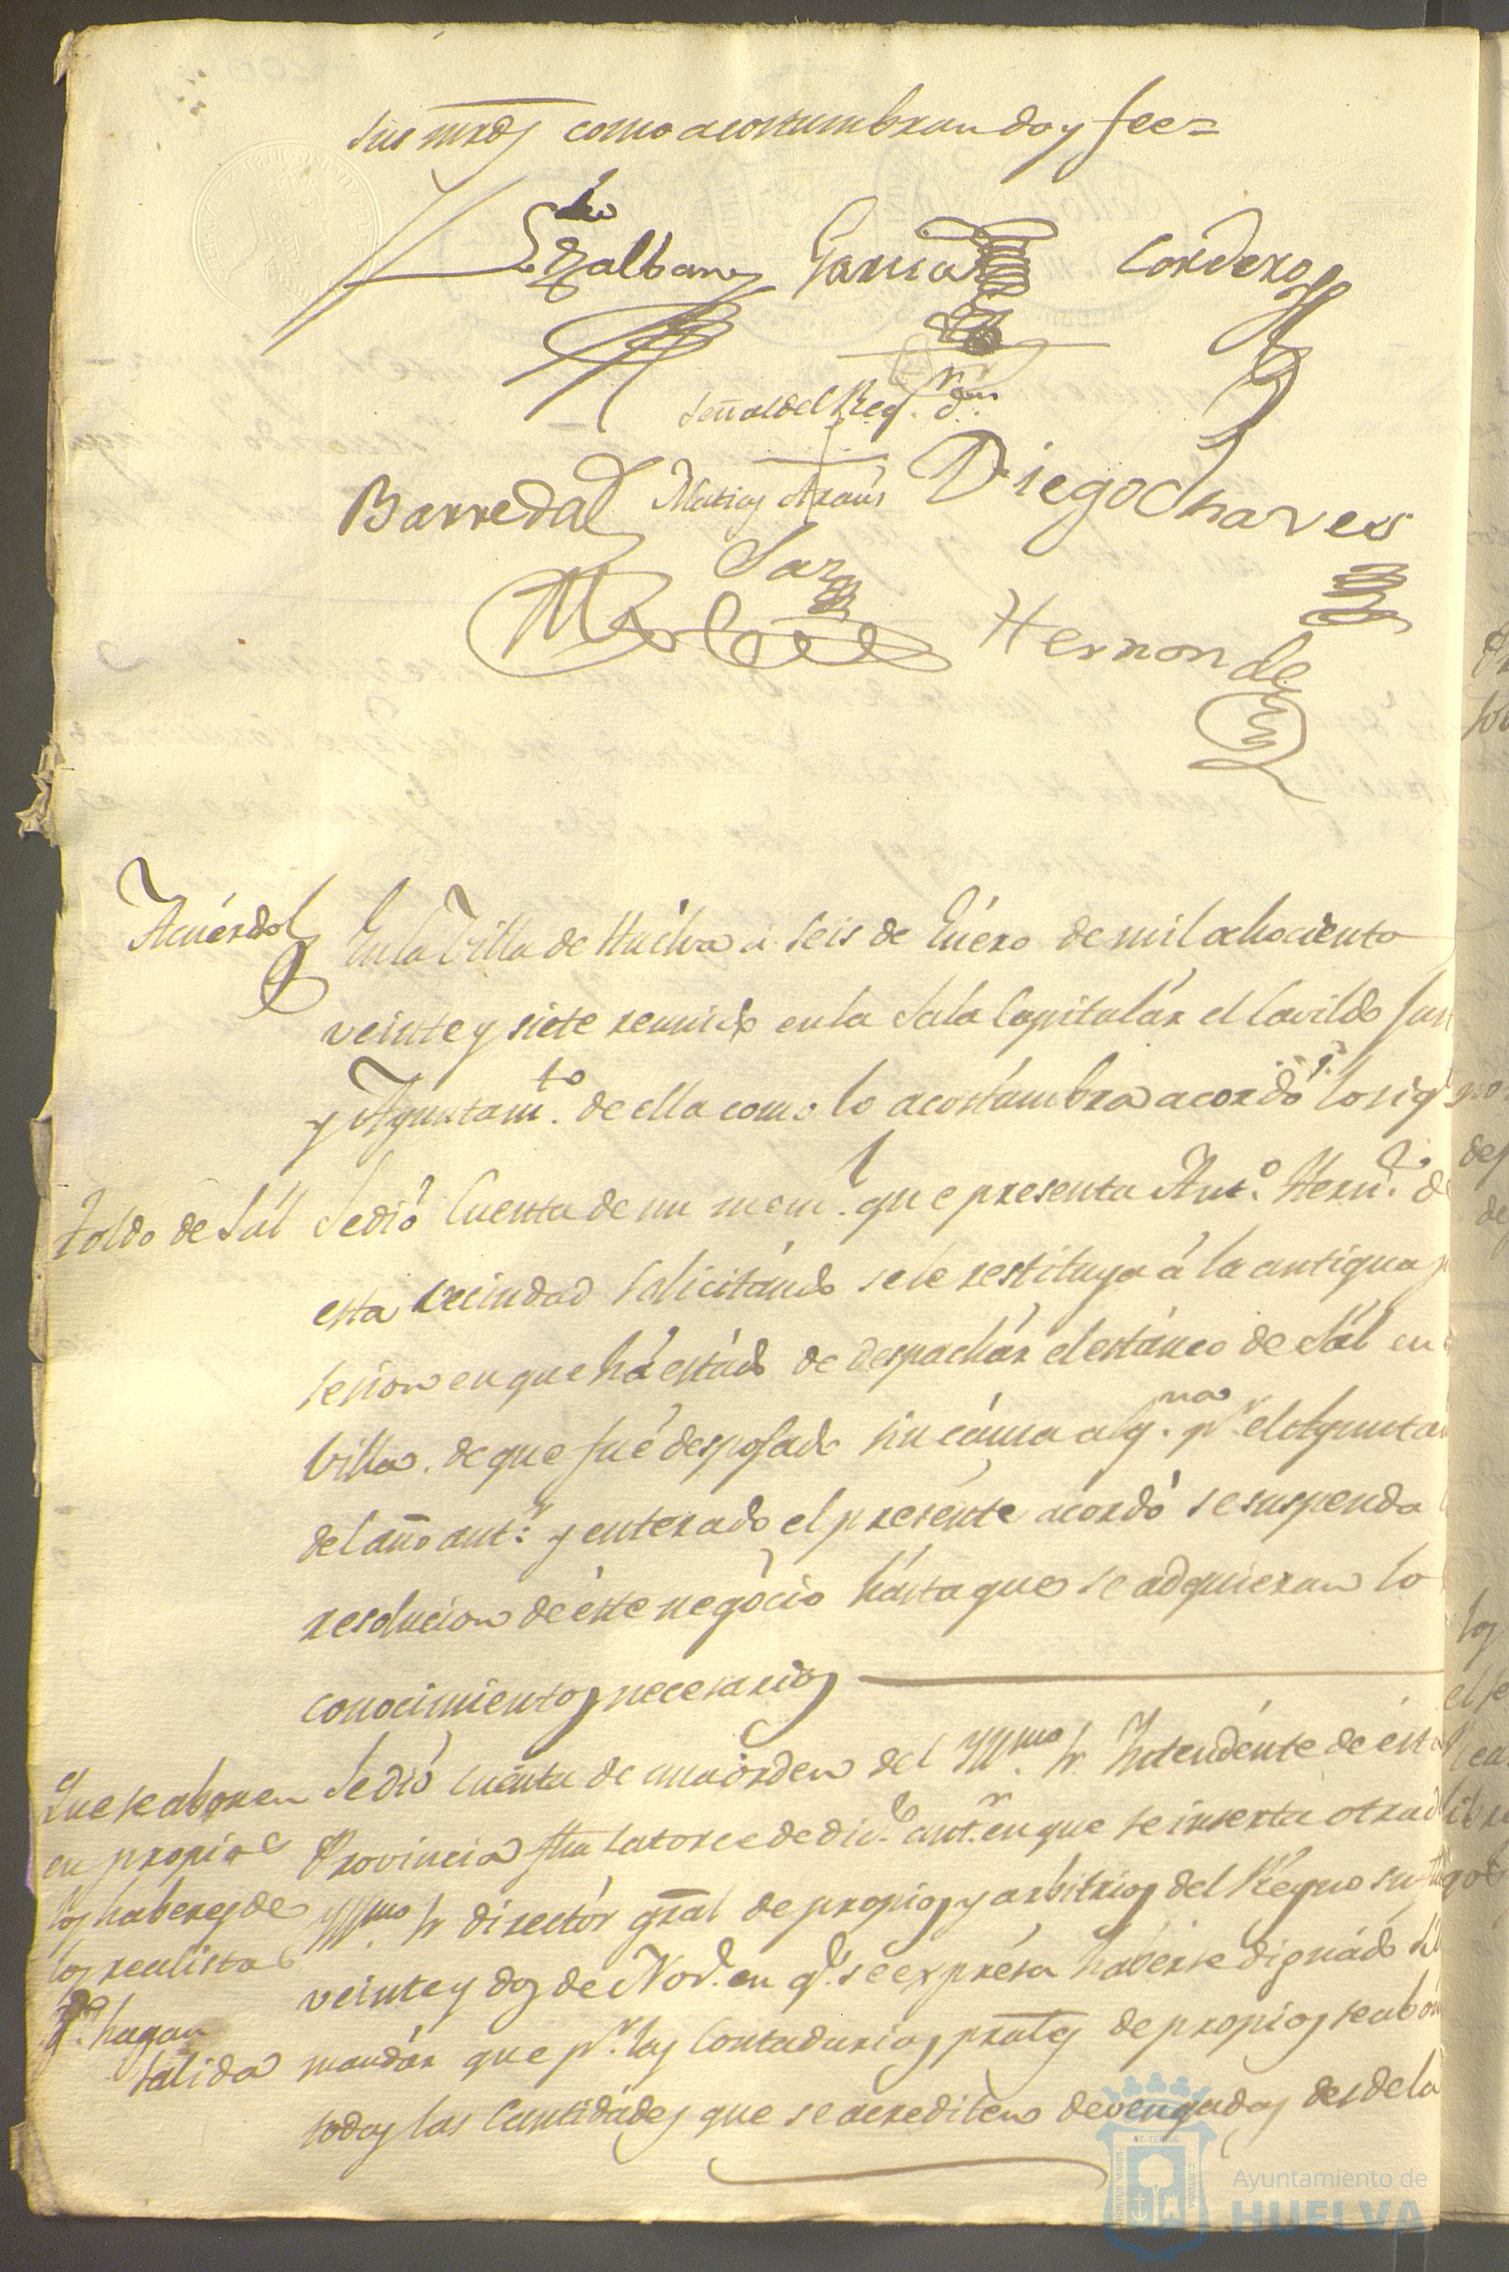 sus mrds como acostumbran doy fee=
Lizo
Galbany García Cordero
señal del Reg.r d.n
Barreda Matias Araus Diego Chaves
Saez
Hernondes
Acuérdo En la Villa de Huelva à seis de Enéro de mil ochociento
veinte y siete reunido en la Sala Capitulár el Cavildo Jus
y Ayuntam.to de ella como lo acostúmbra acordó lo sig.
toldo de Sál Se dió Cuenta de un mem.l que presenta Ant.o Hern.dz de
esta vecindad solicitándo se le restituya á la antigua p
sesion en que há estádo de despachár el estánco de Sál en
villa, de que fué desposado sin cáusa alg.na p.r el Ayunta
del año ant.r y enterado el presénte acordó se suspenda
resolucion de éste negócio hásta que se adquieran lo
conocimientos necesarios
Que se abonen en propios los haberes de los realistas q.e hagan salida
Se dió cuénta de una órden del Yll.mo Sr. Intendénte de ésta
Provincia fha catorce de dic.e ant.r en que se inserta otra d
Yll.mo Sr diréctór gral de propios y arbitrios del Réyno su fha
veinte y dos de Nov.e en q.e se exprésa habérse dignádo S.
mandár que p.r las Contadurias prales de propios se abon
todas las Cantidádes que se acrediten devengadas desde la
Ayuntamiento de
HUELVA